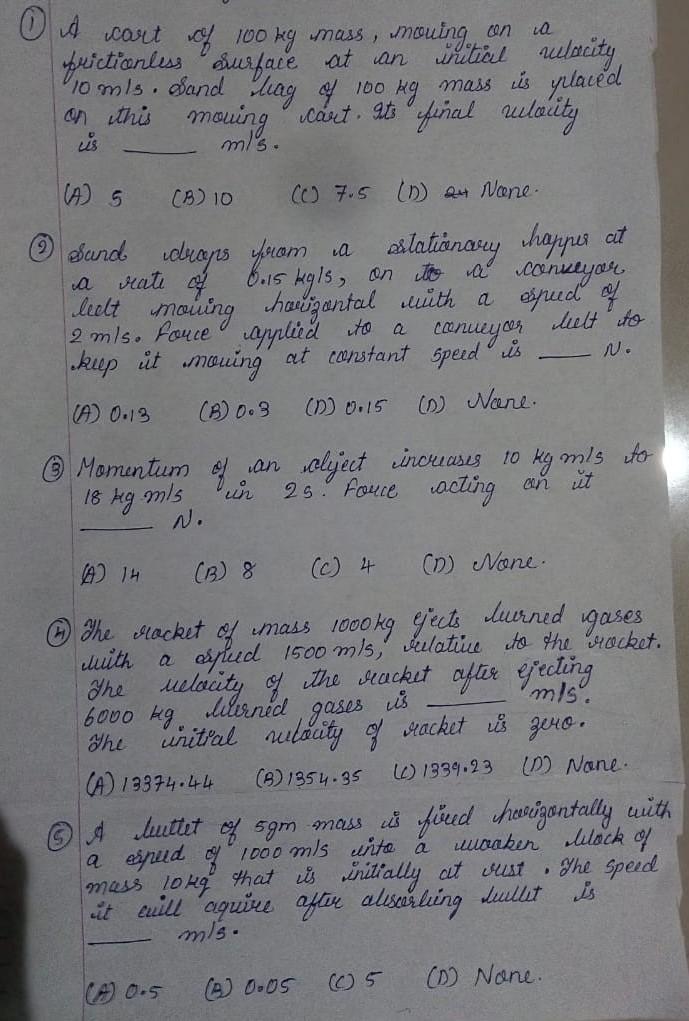 ① A cart of 100 kg mass, moving on a
frictionless surface at an initial velocity
10 m/s. Sand bag of 100 kg mass is placed
on this moving cart. Its final velocity
is ____ m/s.
(A) 5 (B) 10 (C) 7.5 (D) None.
② Sand drops from a stationary hopper at
a rate of 0.15 kg/s, on to a conveyor
belt moving horizontal with a speed of
2 m/s. Force applied to a conveyor belt to
keep it moving at constant speed is ____ N.
(A) 0.13 (B) 0.3 (D) 0.15 (D) None.
③ Momentum of an object increases 10 kg m/s to
18 kg m/s in 2s. Force acting on it
____ N.
(A) 14 (B) 8 (C) 4 (D) None.
④ The rocket of mass 1000 kg ejects burned gases
with a speed 1500 m/s, relative to the rocket.
The velocity of the rocket after ejecting
6000 kg burned gases is ____ m/s.
The initial velocity of rocket is zero.
(A) 13374.44 (B) 1354.35 (C) 1339.23 (D) None.
⑤ A bullet of 5gm mass is fired horizontally with
a speed of 1000 m/s into a wooken block of
mass 10 kg that is initially at rest. The speed
it will aquire after absorbing bullet is
____ m/s.
(A) 0.5 (B) 0.05 (C) 5 (D) None.